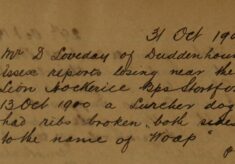 31 Oct 190
Mr D Loveday of Duddenhoe
Essex reports losing near the
Lion Hockerill Bps Stortf
13 Oct 1900 a Lurcher dog
had ribs broken both sides
to the name of "Woap"